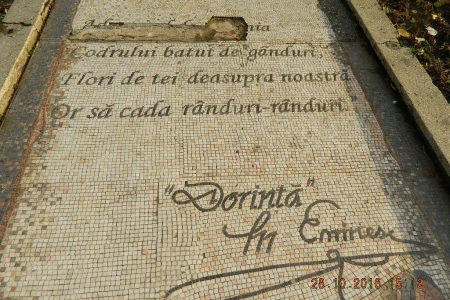 Codrului batut de gânduri,
Flori de tei deasupra noastră
Or să cada rânduri-rânduri."
"Dorintă"
M Eminescu
28.10.2016 15:12